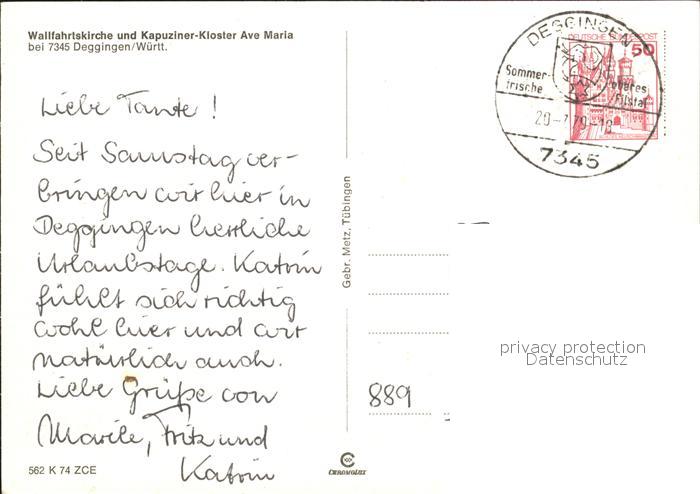 Wallfahrtskirche und Kapuziner-Kloster Ave Maria
bei 7345 Deggingen/Württ.
Liebe Tante!
Seit Samstag ver-
bringen wir hier in
Deggingen herrliche
Urlaubstage. Katrin
fühlt sich richtig
wohl hier und wir
natürlich auch.
Liebe Grüße von
Fritz und
Katrin
562 K 74 ZCE
Gebr. Metz, Tübingen
CHROMOLUX
DEGGINGEN
Sommer-
frische
oberes
Filstal
7345
DEUTSCHE BUNDESPOST
50
889
privacy protection
Datenschutz